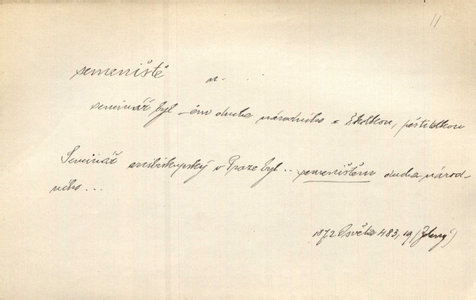 11
semeniště n.
seminář byl –ěm ducha národního a školkou, pěstitelkou
Seminář arcibiskupský v Praze byl .. semeništěm ducha národ-
ního...
1872 Osvěta 483, 19 (Zelený)